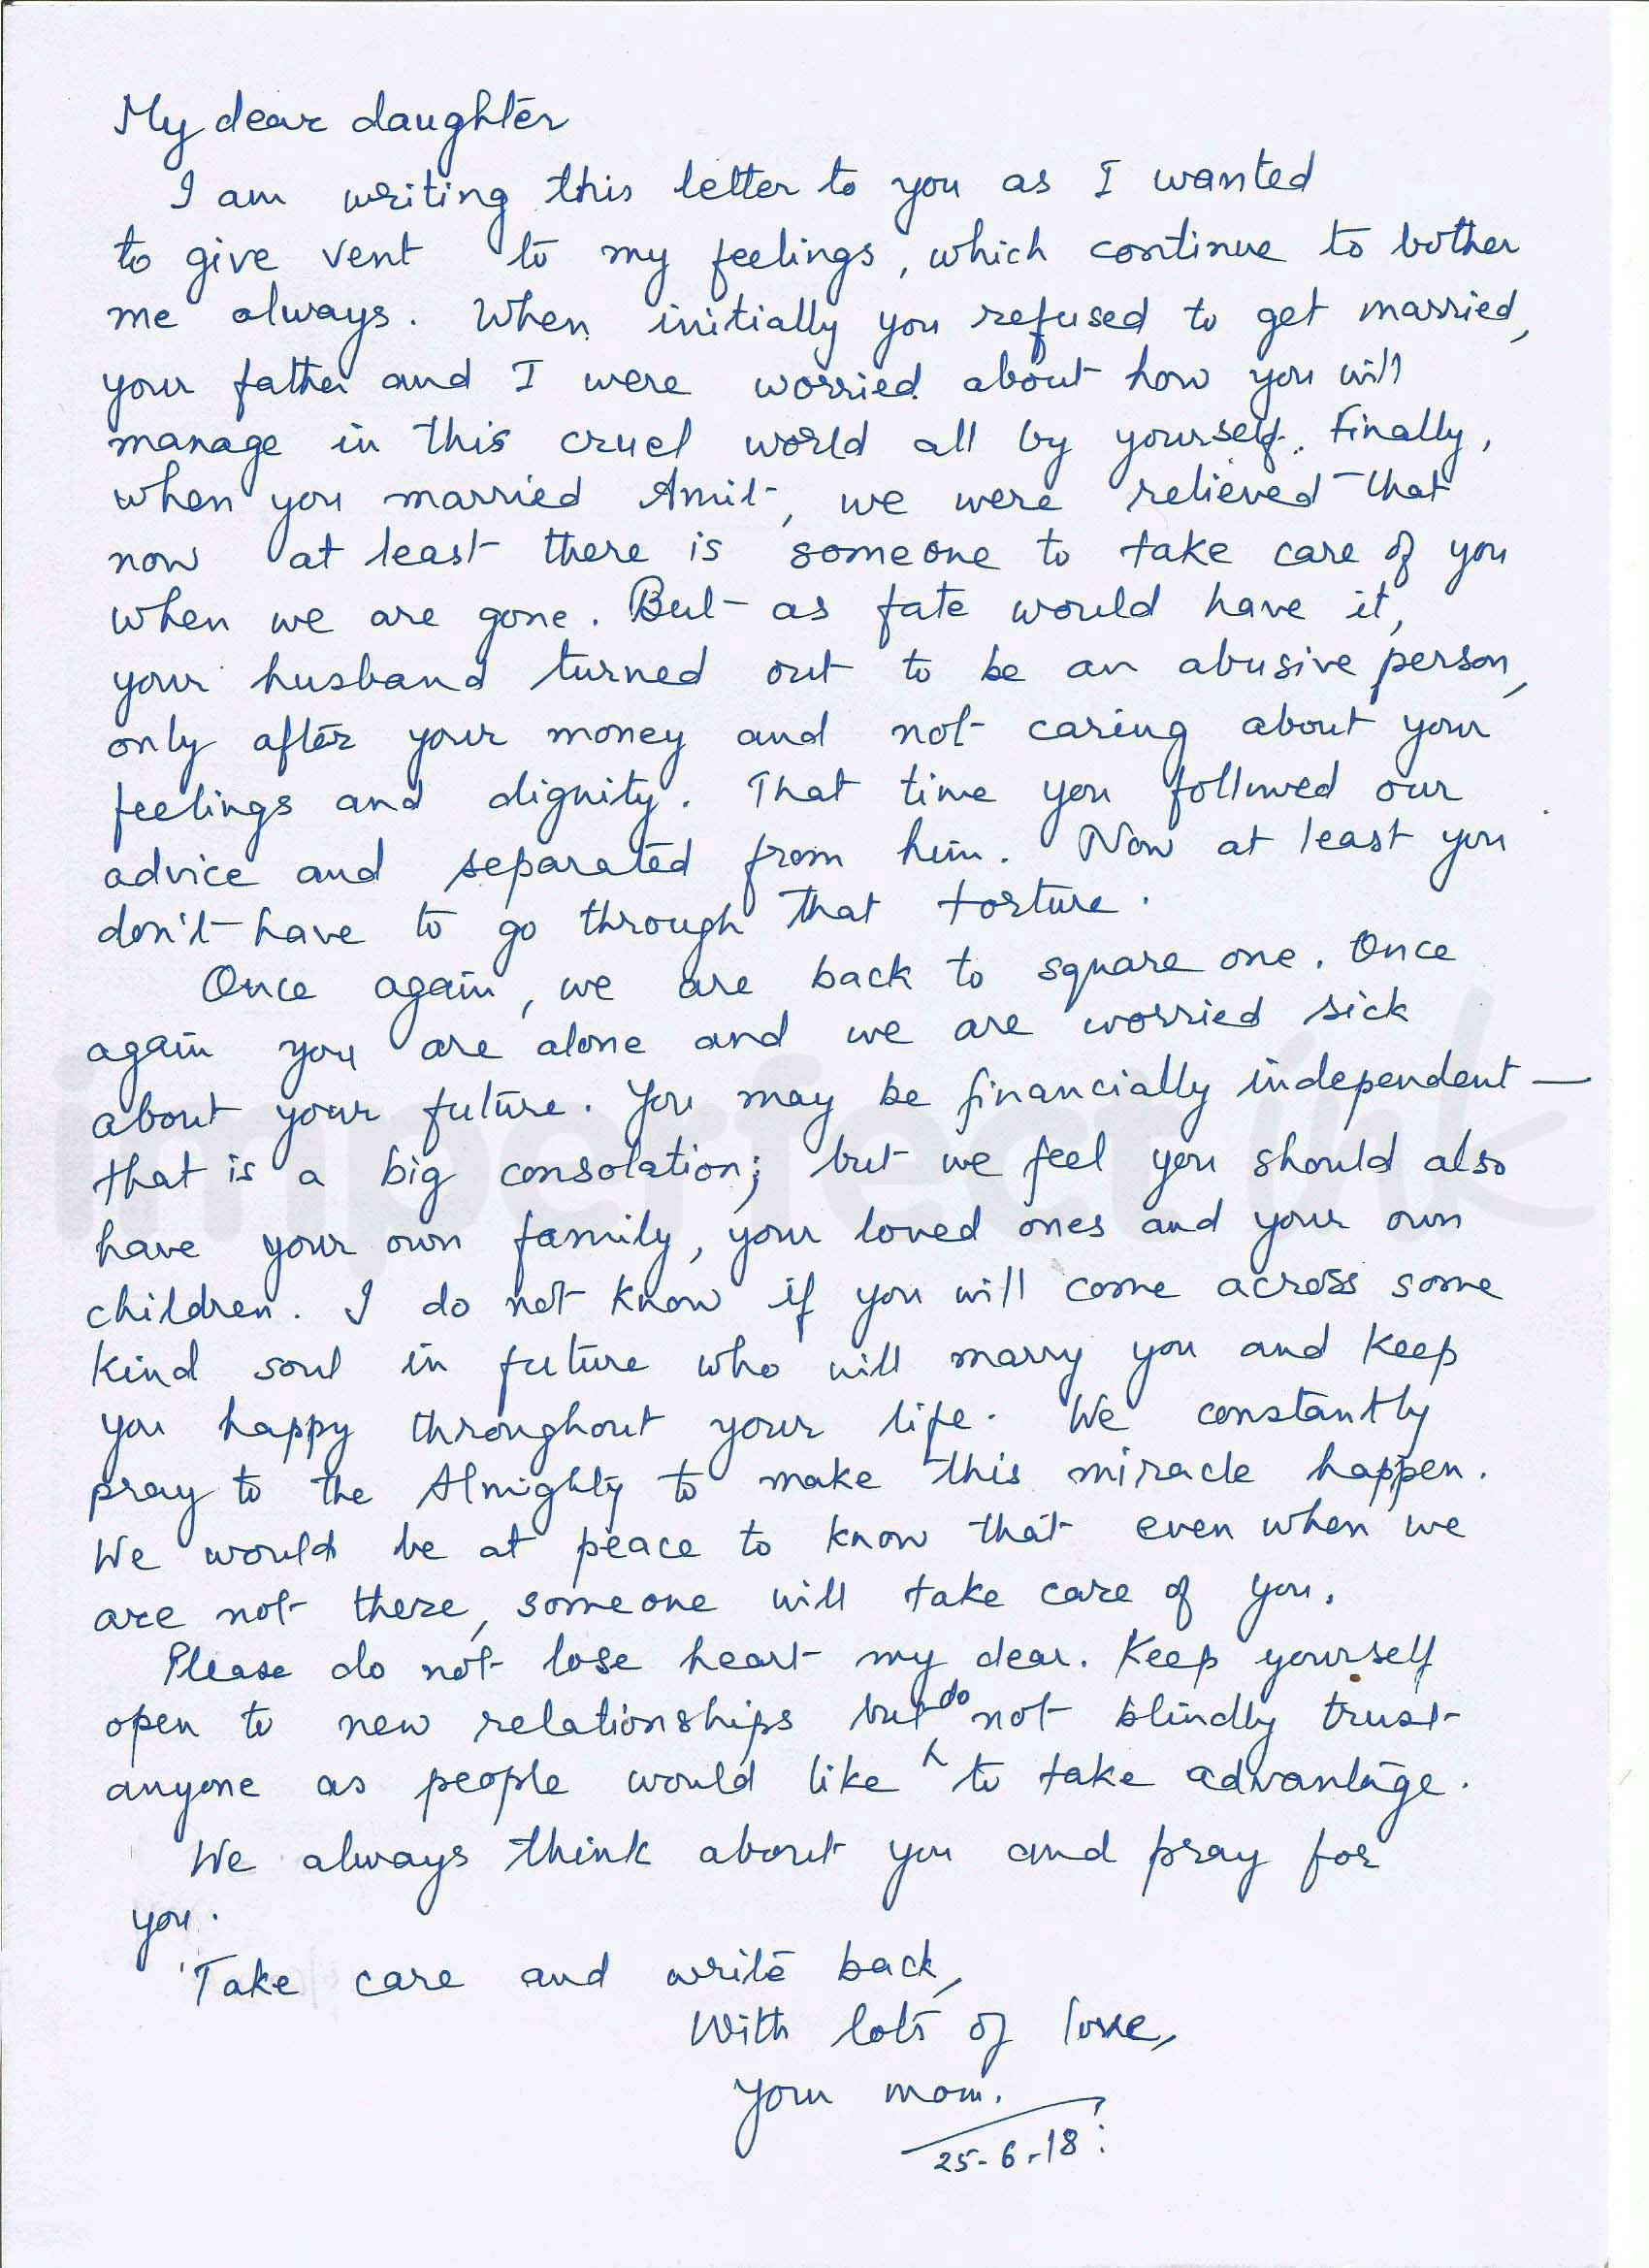 My dear daughter
I am writing this letter to you as I wanted
to give vent to my feelings, which continue to bother
me always. When initially you refused to get married,
your father and I were worried about how you will
manage in this cruel world all by yourself. Finally,
when you married Amit, we were relieved that
now at least there is someone to take care of you
when we are gone. But as fate would have it,
your husband turned out to be an abusive person,
only after your money and not caring about your
feelings and dignity. That time you followed our
advice and separated from him. Now at least you
don't have to go through that torture.
Once again, we are back to square one. Once
again you are alone and we are worried sick
about your future. You may be financially independent —
that is a big consolation; but we feel you should also
have your own family, your loved ones and your own
children. I do not know if you will come across some
kind soul in future who will marry you and keep
you happy throughout your life. We constantly
pray to the Almighty to make this miracle happen.
We would be at peace to know that even when we
are not there, someone will take care of you.
Please do not lose heart my dear. Keep yourself
open to new relationships but do not blindly trust
anyone as people would like to take advantage.
We always think about you and pray for
you.
Take care and write back,
With lots of love,
Your mom.
25-6-18
imperfect ink